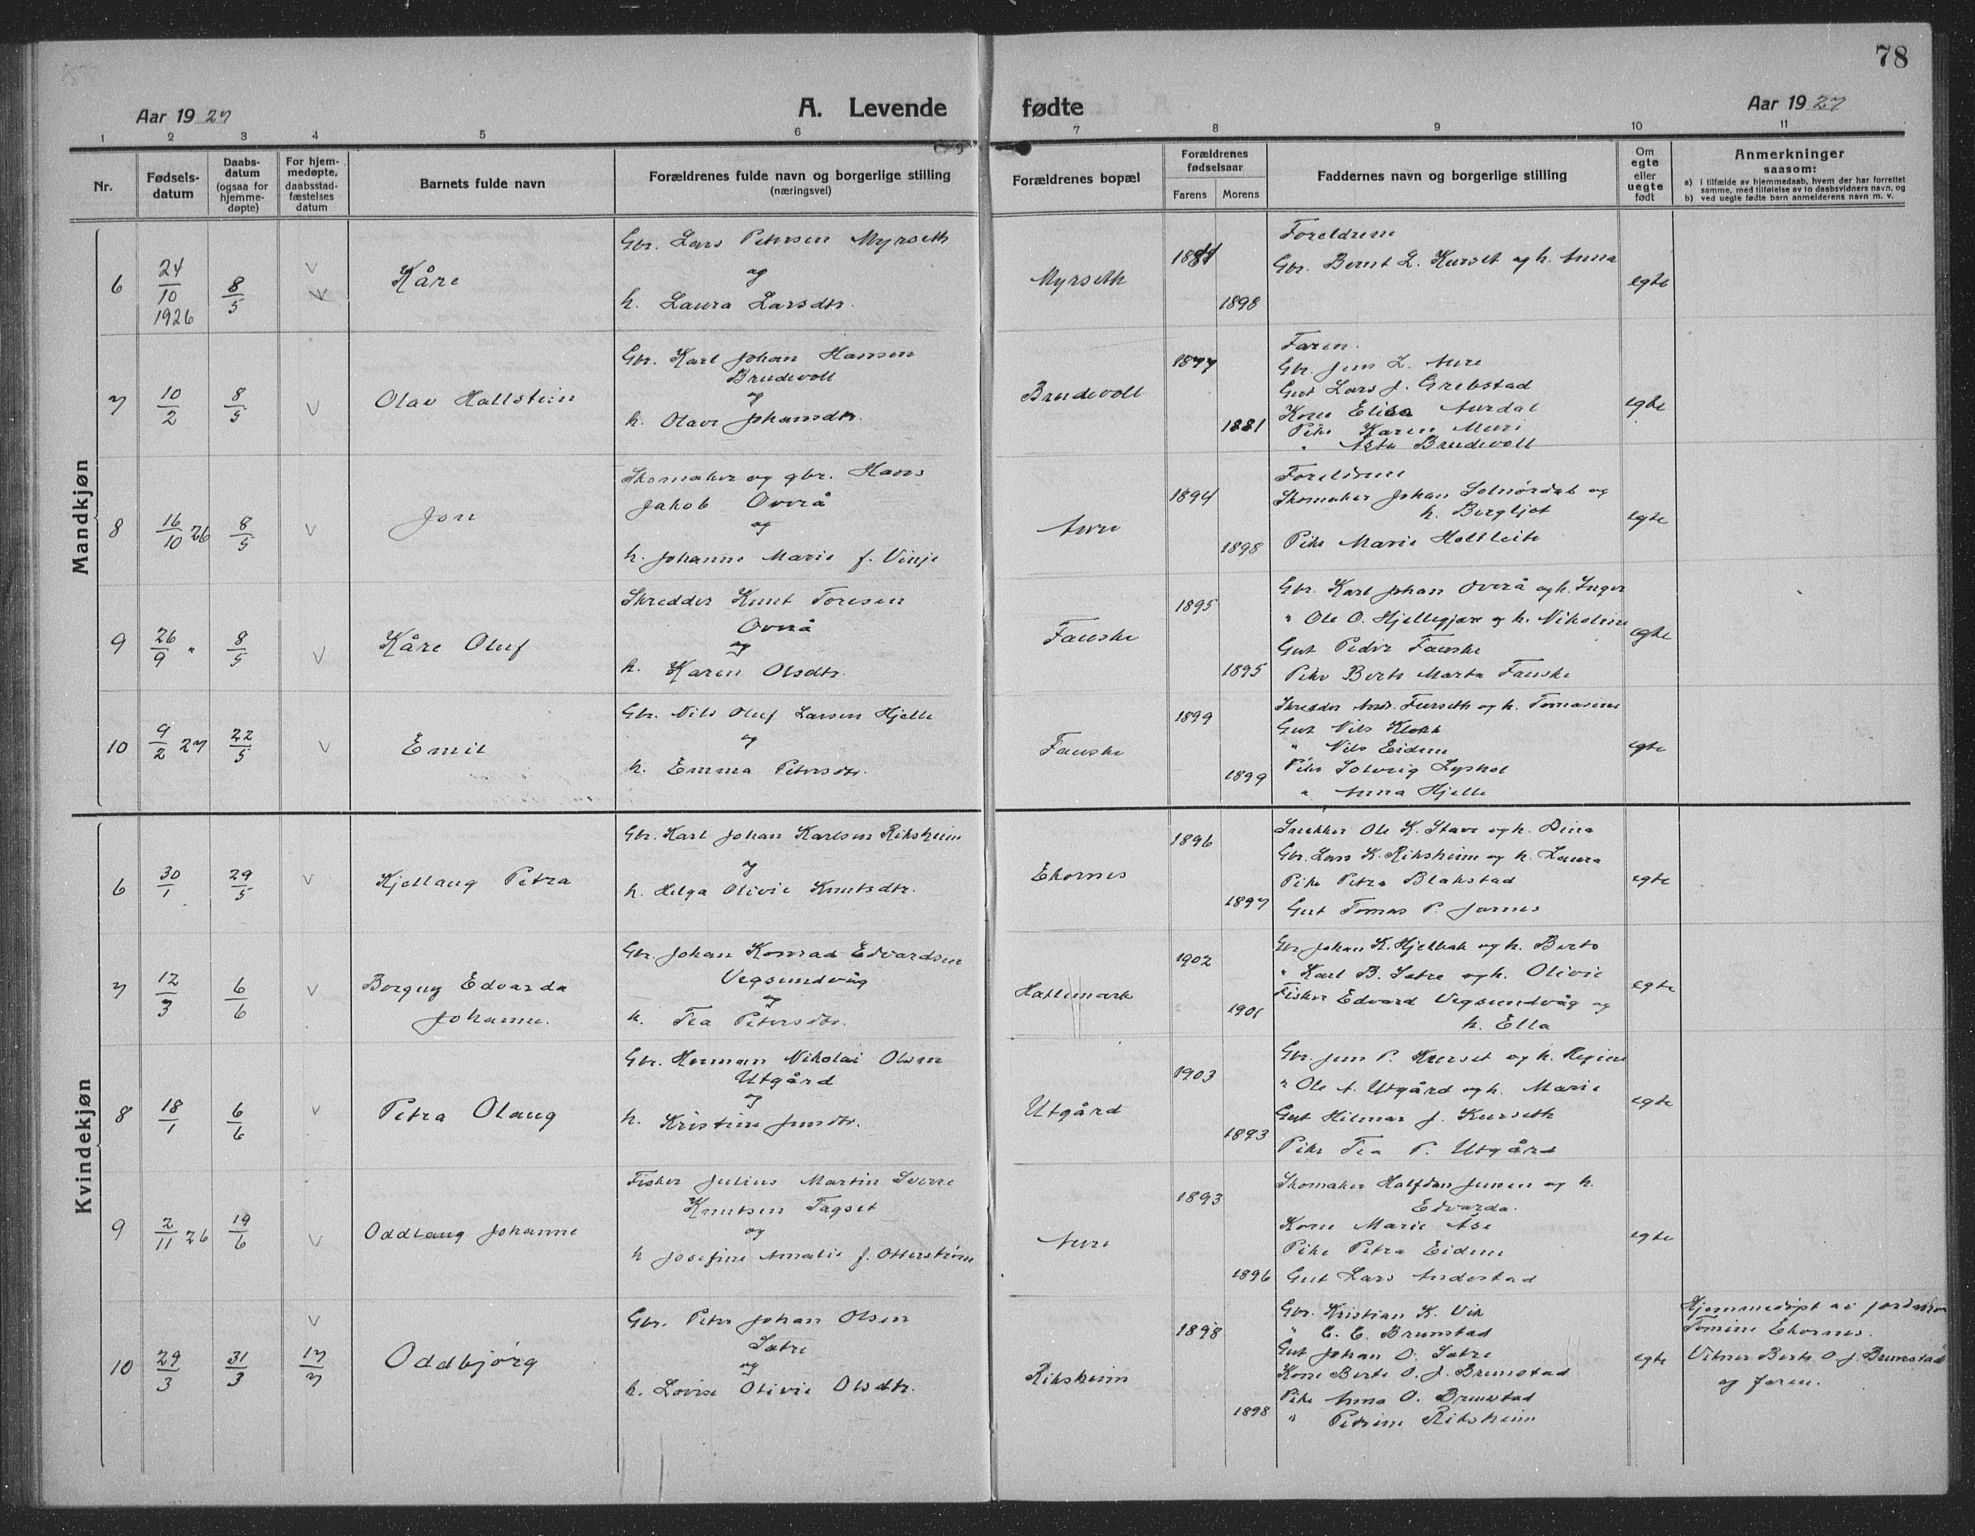 78
Aar 1927
A. Levende fødte
Aar 1927
1 2 3 4 5 6 7 8 9 10 11
Nr.
Fødsels-
datum
Daabs-
datum
(ogsaa for
hjemme-
døpte)
For hjem-
medøpte,
daabsstad-
fæstelses
datum
Barnets fulde navn
Forældrenes fulde navn og borgerlige stilling
(næringsvei)
Forældrenes bopæl
Forældrenes
fødselsaar
Farens Morens
Faddernes navn og borgerlige stilling
Om
egte
eller
uegte
født
Anmerkninger
saasom:
a) I tilfælde av hjemmedaab, hvem der har forrettet
samme, med tilføielse av to daabsvidners navn, og
b) ved uegte fødte barn anmelderens navn m. v.
Mandkjøn
6
24/10
1926
8/5
Kåre
Gbr. Lars Petersen Myrseth
og
h. Laura Larsdtr.
Myrseth
1898
Foreldrene
Gbr. Bernt L. Kurset og h. Anna
egte
7
10/2
8/5
Olav Hallstein
Gbr. Karl Johan Hansen
Brudevoll
og
h. Olave Johansdtr.
Brudevoll
1877
1881
Faren.
Gbr Jens L. Aure
Gut Lars J. Grebstad
Kone Elisa Aurdal
Pike Karen Muri
" Asta Brudevoll
egte
8
16/10 26
8/5
Jon
Skomaker og gbr. Hans
Jakob Overå
og
h. Johanne Marie f. Vinje
Aure
1894
1898
Foreldrene
Skomaker Johan Solnørdal og
h. Bergljot
Pike Marie Holtleite
egte
9
26/9 "
8/5
Kåre Oluf
Skredder Knut Toresen
Overå
og
h. Karen Olsdtr.
Fauske
1895
1895
Gbr. Karl Johan Overå og h. Inger
" Ole O. Hjellegjære og h. Nikoline
Gut Peder Fauske
Pike Berte Marta Fauske
egte
10
9/2 27
22/5
Emil
Gbr. Nils Oluf Larsen Hjelle
og
h. Emma Petersdtr.
Fauske
1899
1899
Skredder Andr. Furseth og h. Tomasine
Gut Nils Klokk
" Nils Eidem
Pike Solveig Lyshol
" Anna Hjelle
egte
Kvindekjøn
6
30/1
29/5
Kjellaug Petra
Gbr. Karl Johan Karlsen Riksheim
og
h. Helga Olivie Knutsdtr.
Ekornes
1896
1897
Snekker Ole K. Stave og h. Dina
Gbr. Lars K. Riksheim og h. Laura
Pike Petra Blakstad
Gut Tomas P. Jarnes
egte
7
12/3
6/6
Borgny Edvarda
Johanne.
Gbr. Johan Konrad Edvardsen
Vegsundvåg
og
h. Tea Petersdtr.
Hattemark
1902
1901
Gbr. Johan K. Hjelbak og h. Berte
" Karl B. Sætre og h. Olivie
Fisker Edvard Vegsundvåg og
h. Ella
egte
8
18/1
6/6
Petra Olaug
Gbr. Herman Nikolai Olsen
Utgård
og
h. Kristine Jensdtr.
Utgård
1903
1893
Gbr. Jens P. Kurset og h. Regine
" Ole A. Utgård og h. Marie
Gut Hilmar J. Kurseth
Pike Tea P. Utgård
egte
9
2/11 26
19/6
Oddlaug Johanne
Fisker Julius Martin Sverre
Knutsen Tagset
og
h Josefine Amalie f. Otterstrøm
Aure
1893
1896
Skomaker Halfdan Jensen og h.
Edvarda.
Kone Marie Åse
Pike Petra Eidem
Gut Lars Andestad
egte
10
29/3
31/3
17/7
Oddbjørg
Gbr. Peter Johan Olsen
Sætre
og
h. Lovise Olivie Olsdtr.
Riksheim
1898
1898
Gbr. Kristian K. Vik
" E. E. Brunstad
Gut Johan O. Sætre
Kone Berte O. J. Brunstad
Pike Anna O. Brunstad
" Petrine Riksheim
egte
Hjemmedøpt av jordmor
Tomine Ekornes.
Vitner Berte O. J. Brunstad
og faren.